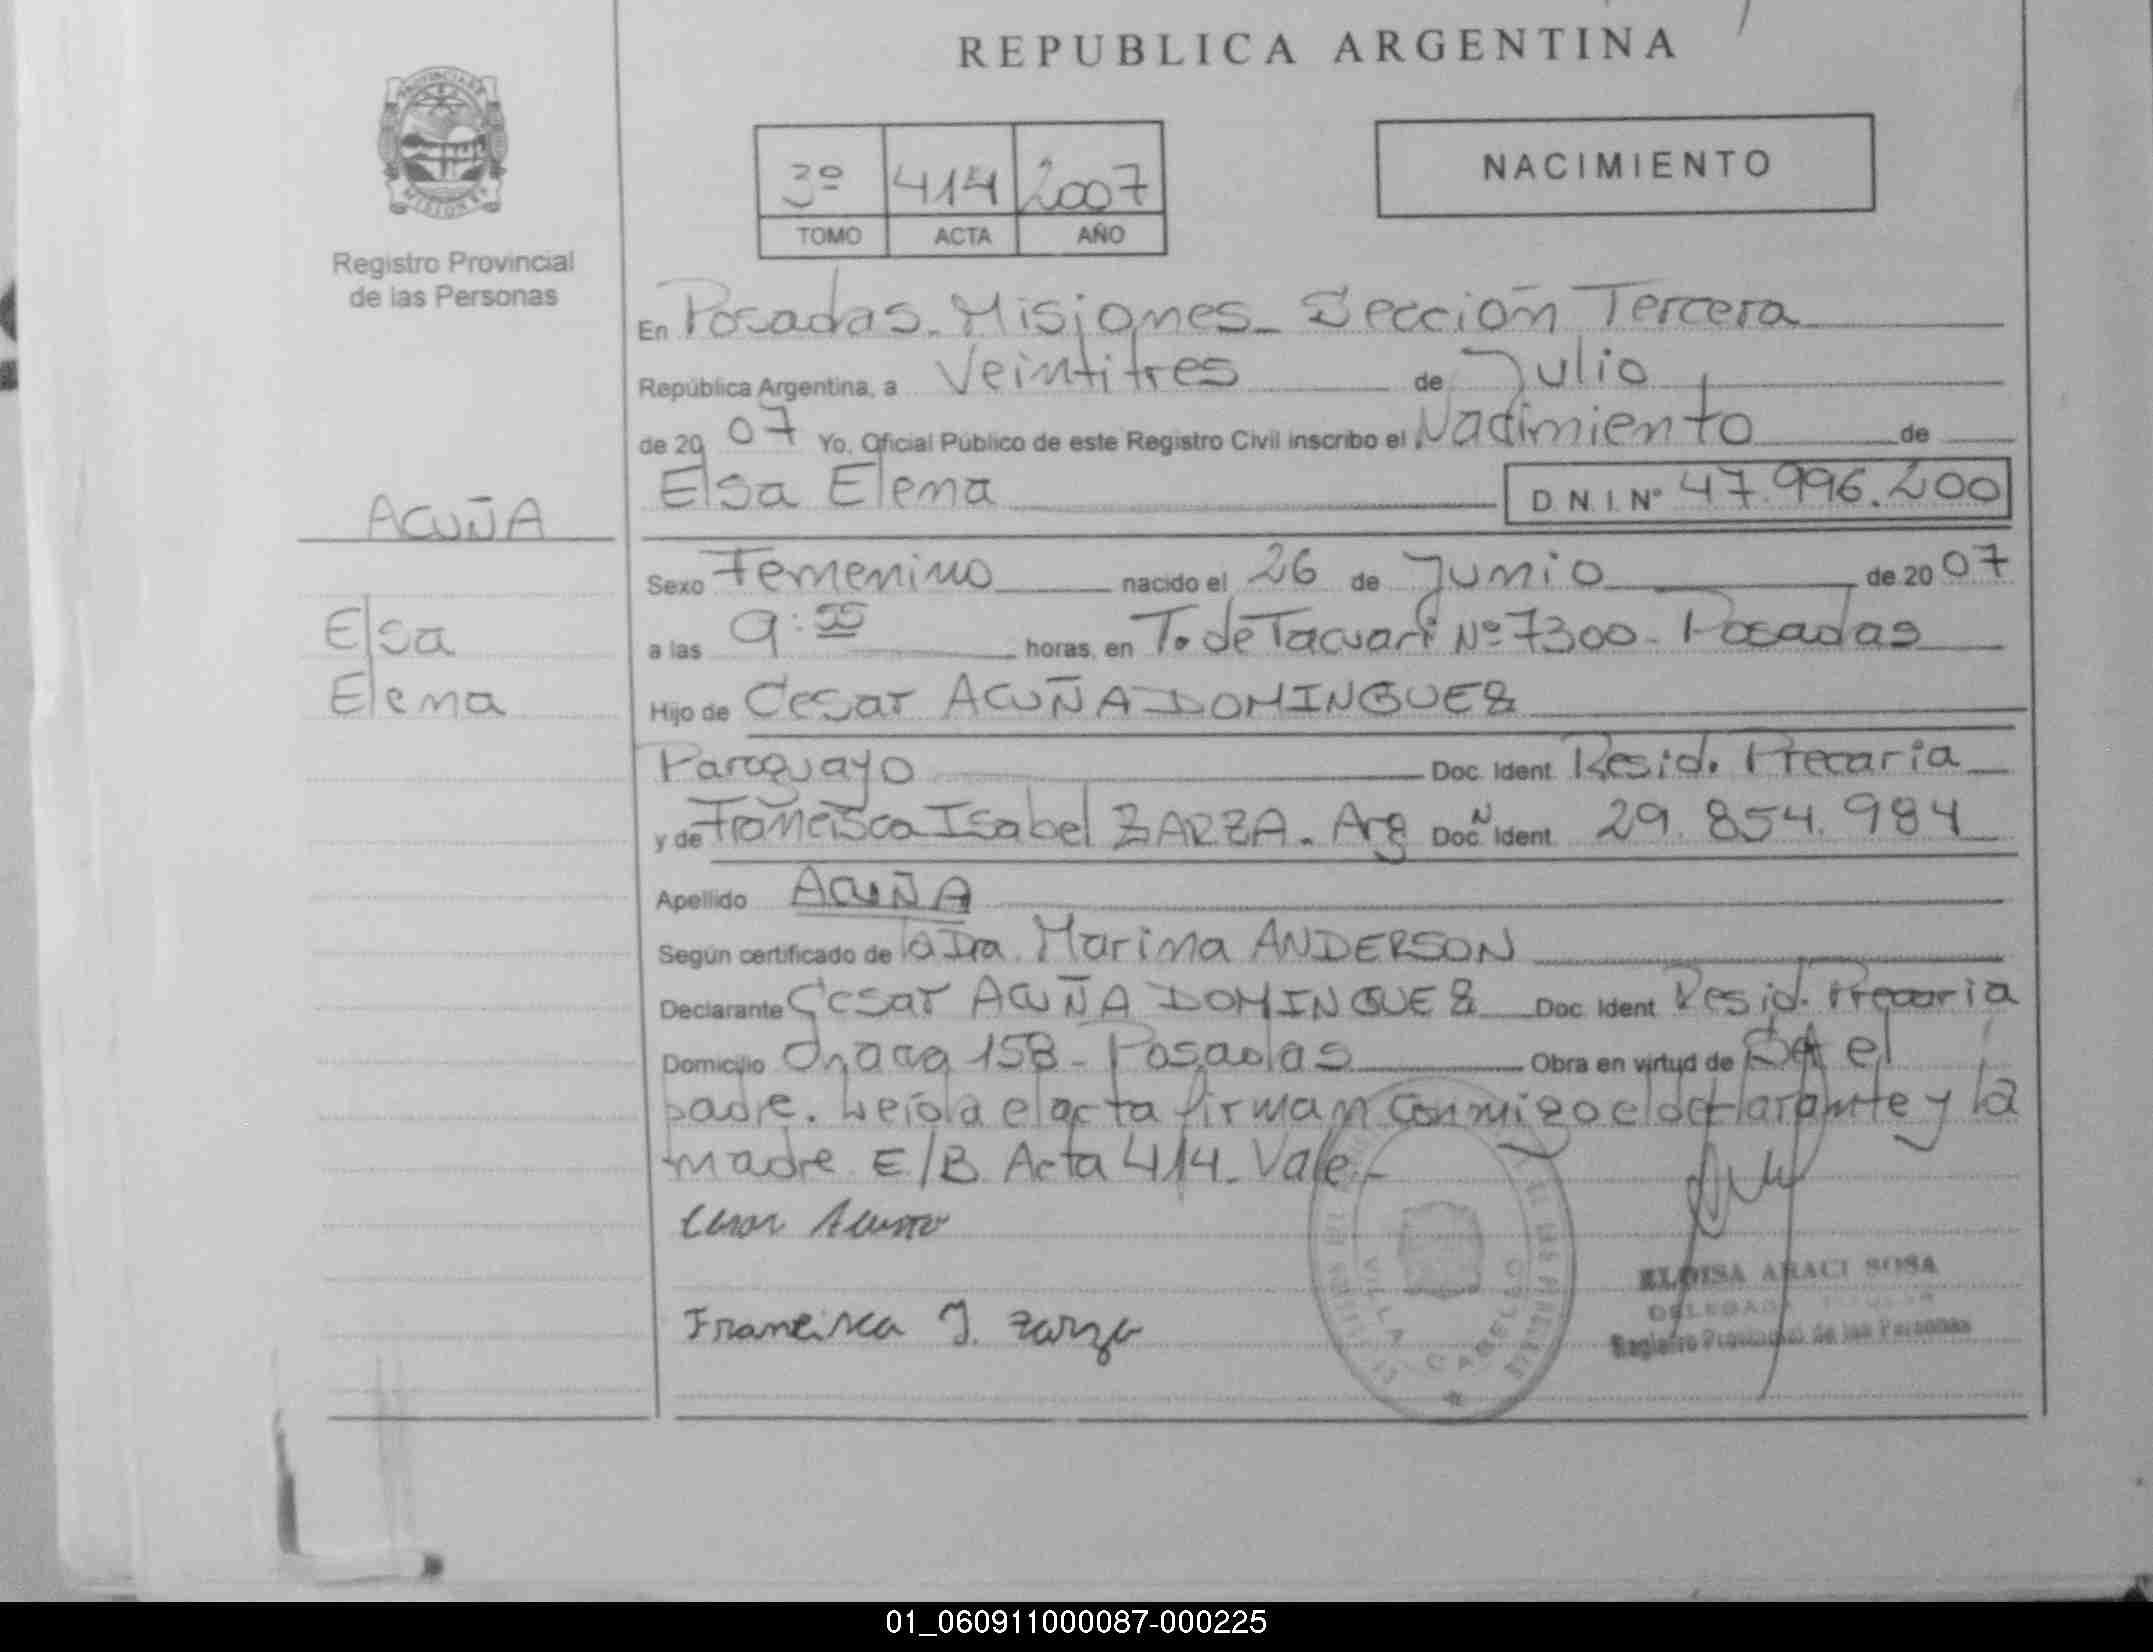 REPUBLICA ARGENTINA
PROVINCIA DE
MISIONES
Registro Provincial
de las Personas
3º 414 2007
TOMO ACTA AÑO
NACIMIENTO
En Posadas. Misiones. Sección Tercera
República Argentina, a Veintitres de Julio
de 2007 Yo, Oficial Público de este Registro Civil inscribo el Nacimiento de
Elsa Elena D.N.I. Nº 47.996.200
ACUÑA
Elsa
Elena
Sexo Femenino nacido el 26 de Junio de 2007
a las 9:55 horas, en T. de Tacuarí Nº 7300 - Posadas
Hijo de Cesar ACUÑA DOMINGUEZ
Paraguayo Doc. Ident. Resid. Precaria
y de Francisca Isabel ZARZA. Arg Doc. Ident. 29.854.984
Apellido ACUÑA
Según certificado de la Dra. Marina ANDERSON
Declarante Cesar ACUÑA DOMINGUEZ Doc. Ident. Resid. Precaria
Domicilio Chacra 158 - Posadas Obra en virtud de Ser el
padre. Leída el acta firman conmigo el declarante y la
madre. E/B. Acta 414. Vale.-
Cesar Acuña
Francisca I. Zarza
VILLA CABELLO
ELOISA ARACI SOSA
DELEGADA TITULAR
Registro Provincial de las Personas
01_060911000087-000225